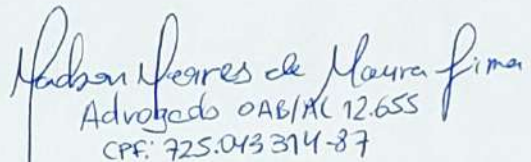 Madson Meires de Moura Lima
Advogado OAB/AL 12.655
CPF: 725.043 314-87